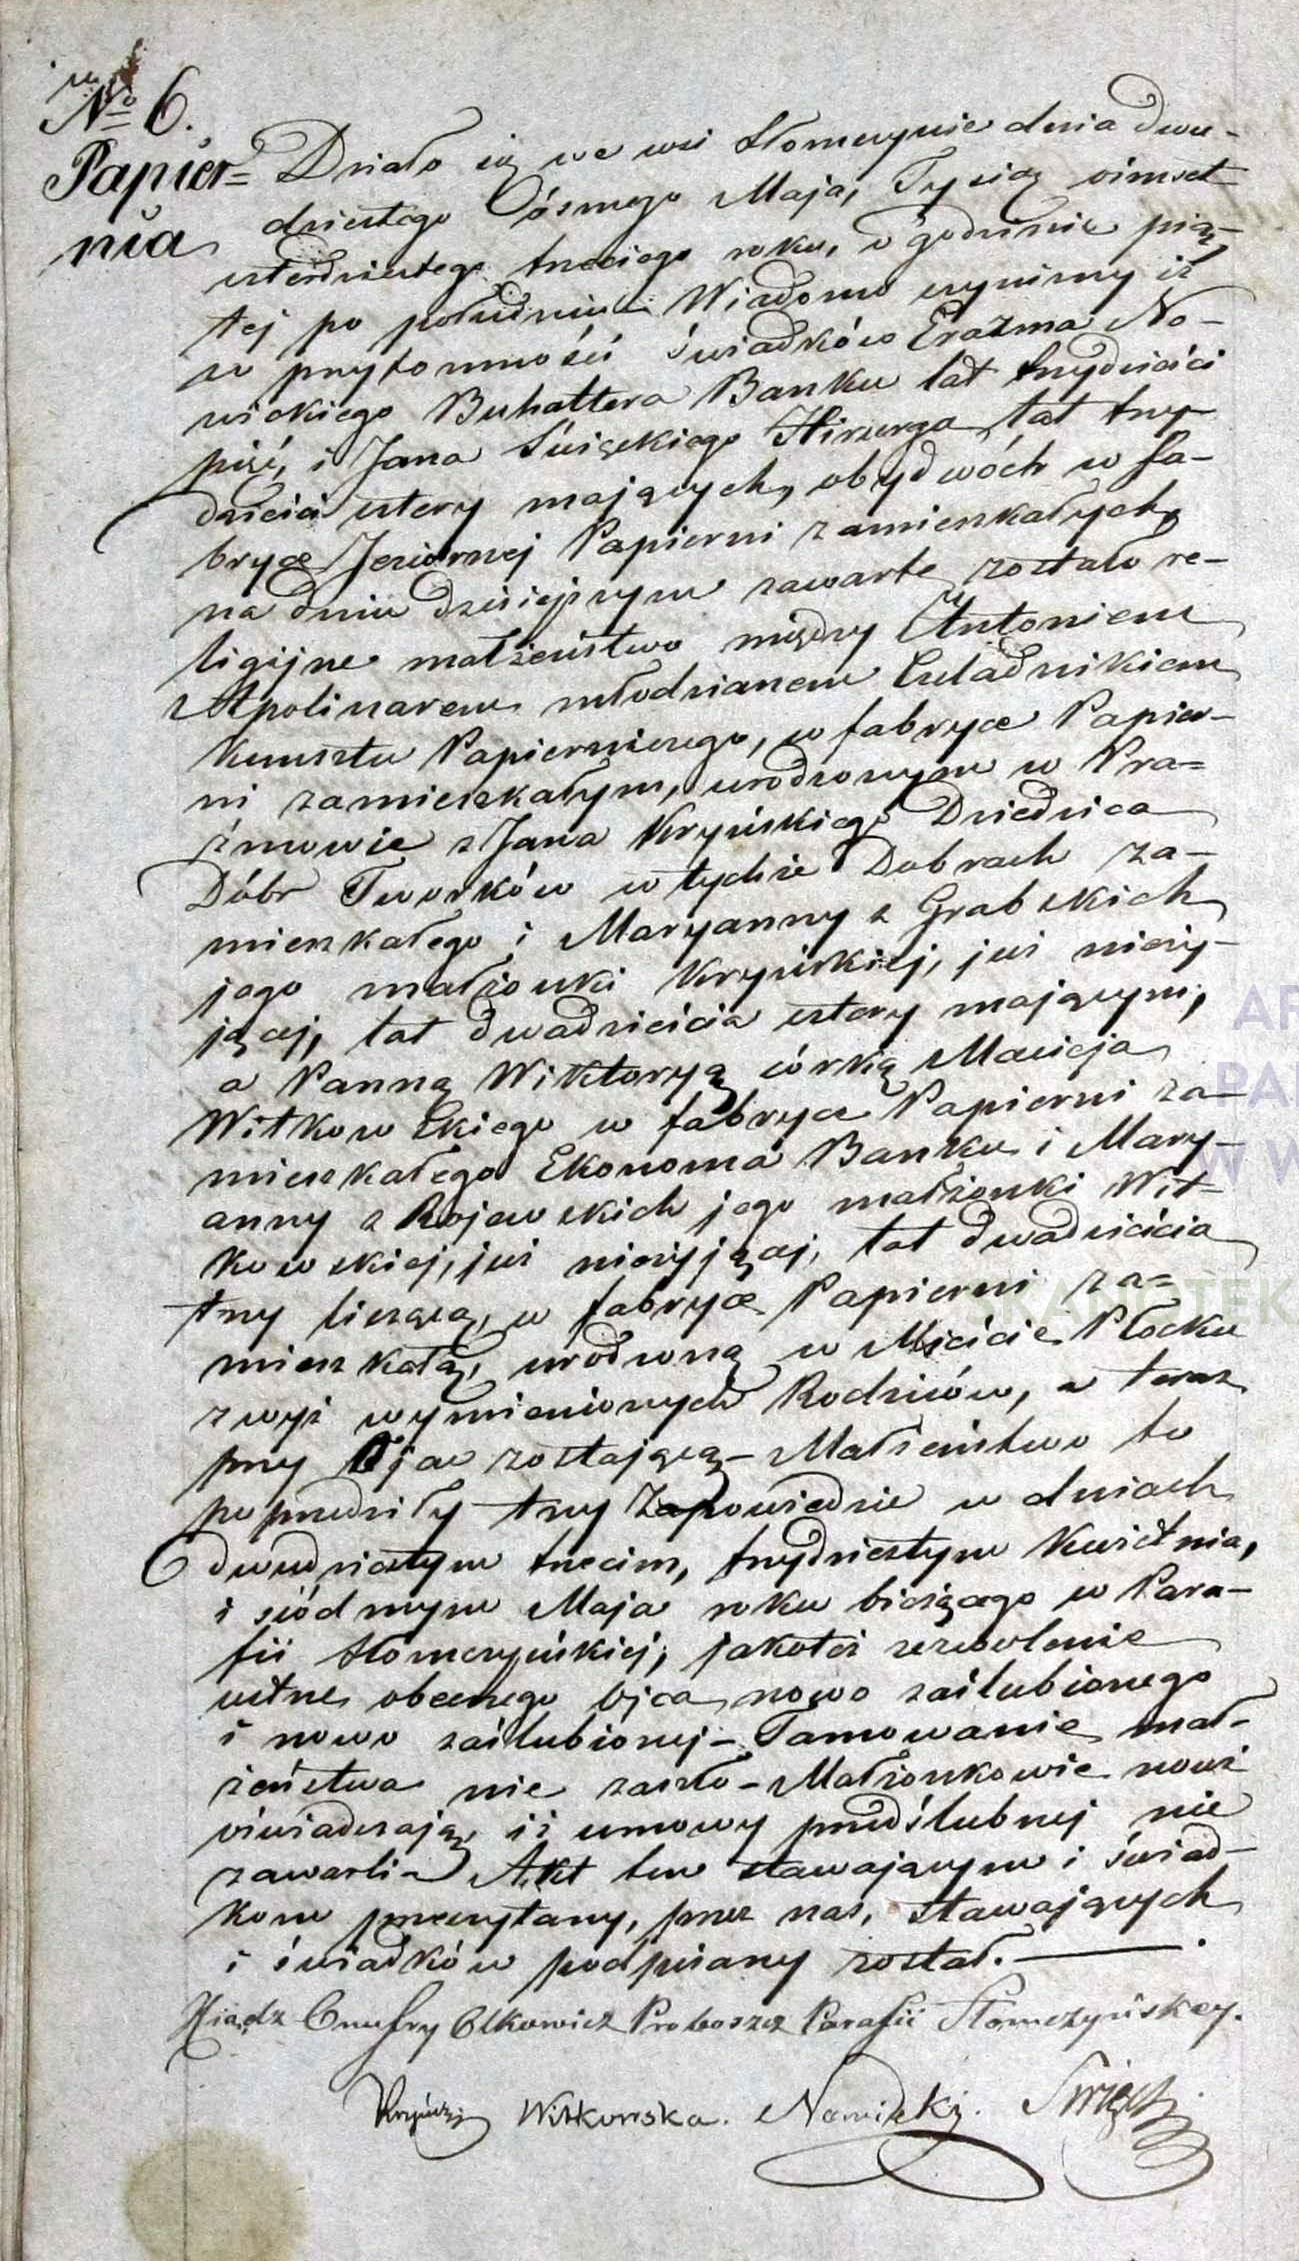 No 6.
Papier=
nia
Działo się we wsi Słomczynie dnia dwu-
dziestego Ósmego Maja, Tysiąc ośmset
czterdziestego trzeciego roku, o godzinie pią-
tej po południu. Wiadomo czynimy iż
w przytomności świadków Erazma No-
wickiego Buhaltera Banku lat trzydzieści
pięć, i Jana Święckiego Hirurga lat trzy-
dzieści cztery mających, obydwóch w fa-
bryce Jeziornej Papierni zamieszkałych,
na dniu dzisiejszym zawarte zostało re-
ligijne małżeństwo między Antonim
Apolinarem młodzianem Czeladnikiem
kunsztu Papierniczego, w fabryce Papier-
ni zamieszkałym, urodzonym w Pra=
żmowie z Jana Kryńskiego Dziedzica
Dóbr Tworków w tychże Dobrach za-
mieszkałego i Maryanny z Grabskich
jego małżonki Kryńskiej, już nieży-
jącej, lat dwadzieścia cztery mającym,
a Panną Wiktoryą córką Macieja
Witkowskiego w fabryce Papierni za-
mieszkałego Ekonoma Banku i Mary-
anny z Rojewskich jego małżonki Wit-
kowskiej, już nieżyjącej, lat dwadzieścia
trzy liczącą, w fabryce Papierni za=
mieszkałą, urodzoną w Mieście Płocku
z wyż wymienionych Rodziców, a teraz
przy Ojcu zostającą – Małżeństwo to
poprzedziły trzy Zapowiedzie w dniach
dwudziestym trzecim, trzydziestym Kwietnia,
i siódmym Maja roku bieżącego w Para-
fii Słomczyńskiej, jakoteż zezwolenie
ustne obecnego Ojca nowo zaślubionego
i nowo zaślubionej – Tamowanie mał-
żeństwa nie zaszło – Małżonkowie nowi
oświadczają, iż umowy przedślubnej nie
zawarli – Akt ten stawającym i świad-
kom przeczytany, przez nas, stawających
i świadków podpisany został. —
Xiądz Onufry Olkowicz Proboszcz Parafii Słomczyńskey.
Kryński Witkowska. Nowicki. Święcki
AR
PAŃ
W W
SKANOTEKA